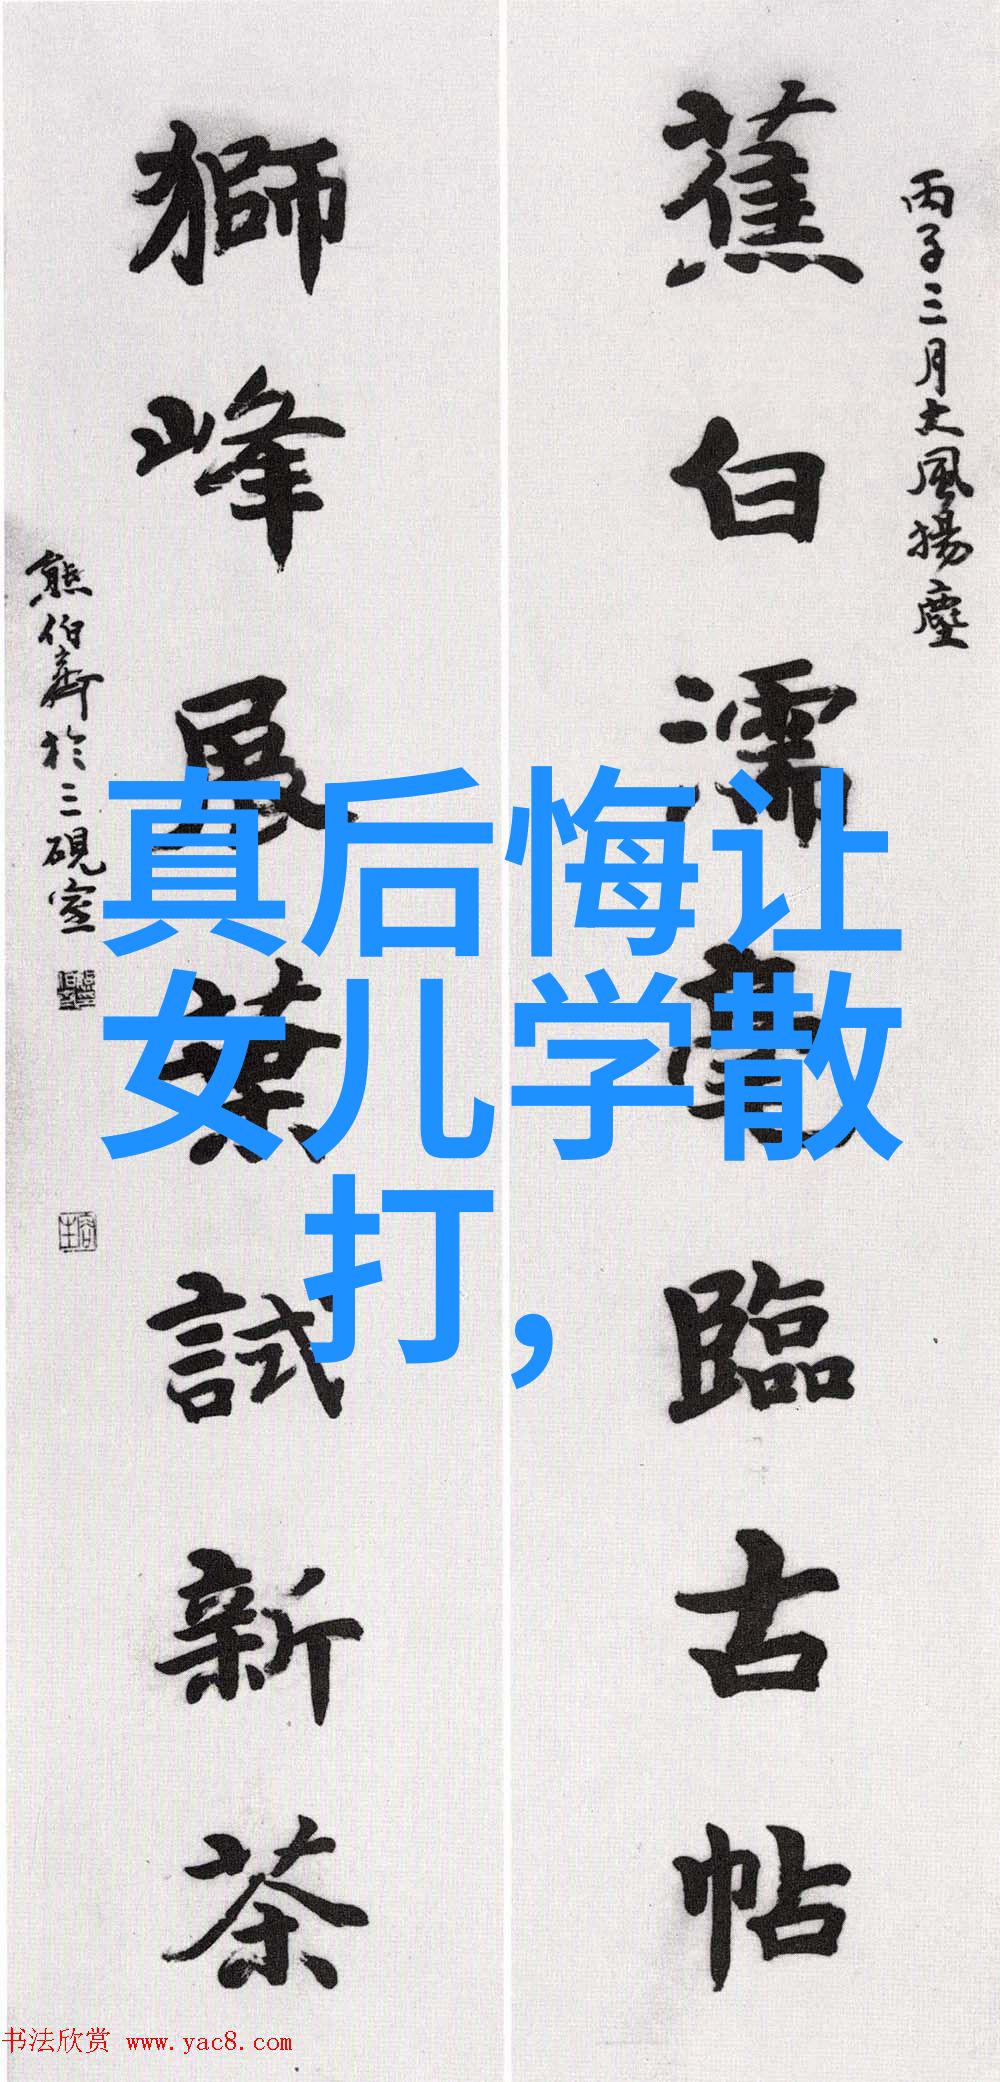 丙子三月大風揚塵
蕉白濡毫臨古帖
獅峰展葉試新茶
熊伯齊於三硯室
真后悔让
女儿学散
打，
书法欣赏 www.yac8.com